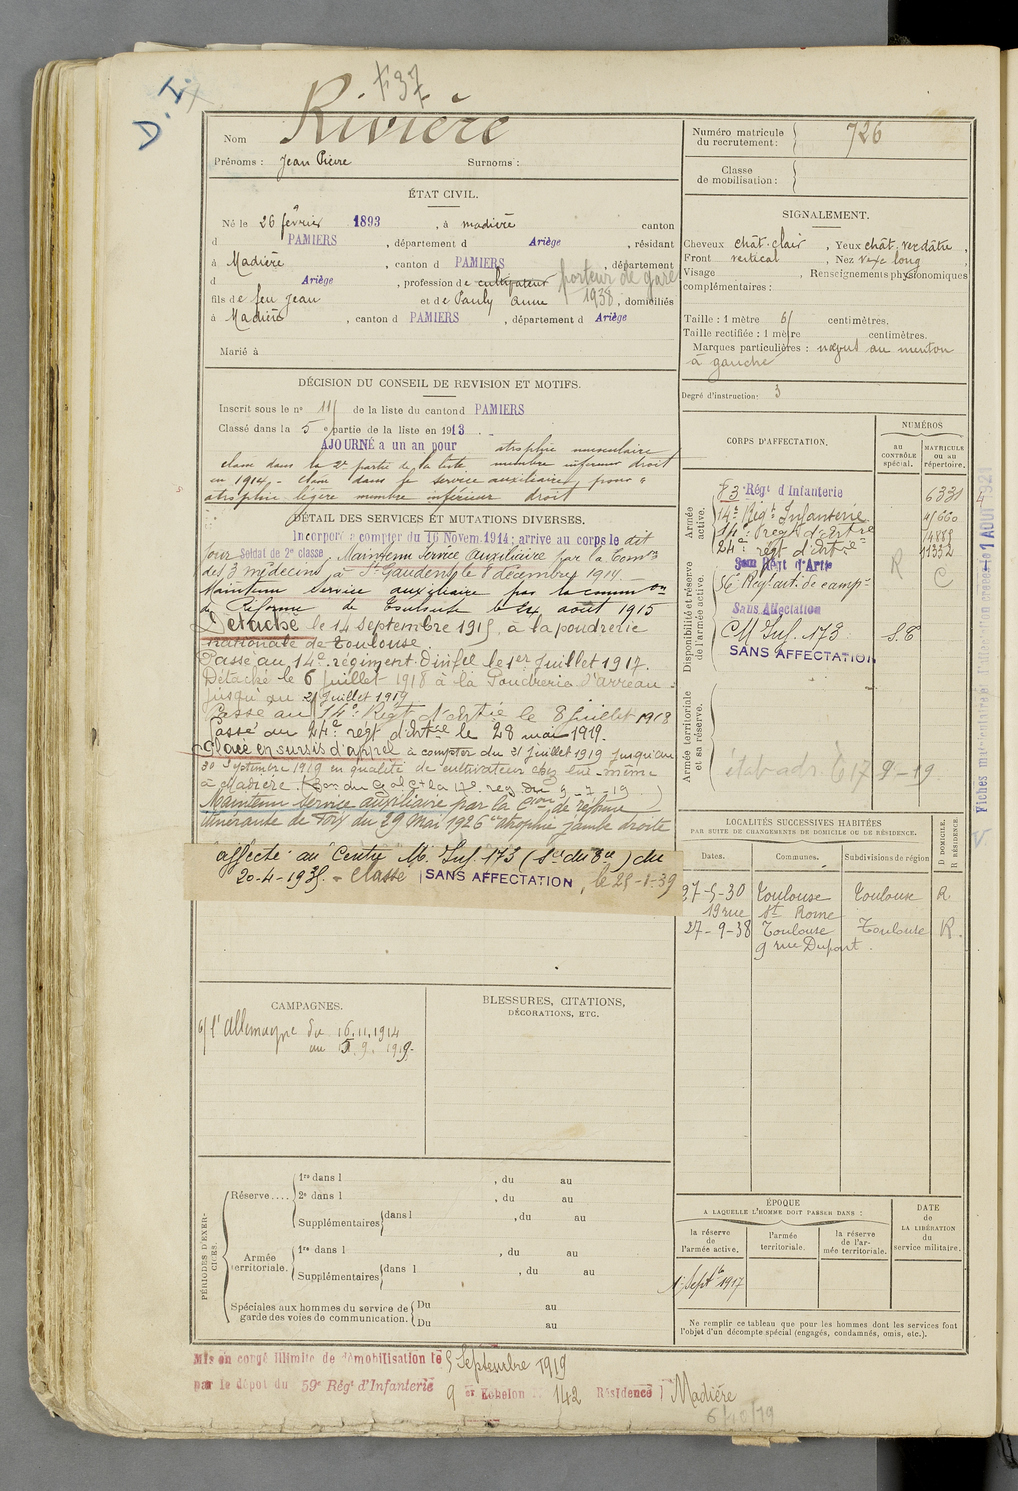 D. I.
+37
Nom Rivière
Prénoms : Jean Pierre Surnoms :
Numéro matricule du recrutement : 726
Classe de mobilisation :
ÉTAT CIVIL.
Né le 26 février 1893, à Madière canton
d PAMIERS, département d Ariège, résidant
à Madière, canton d PAMIERS, département
d Ariège, profession de cultivateur porteur de gare 1938
fils de feu Jean et de Pauly Anne, domiciliés
à Madière, canton d PAMIERS, département d Ariège
Marié à
SIGNALEMENT.
Cheveux chât. clair, Yeux chât. verdâtre,
Front vertical, Nez vexe long
Visage , Renseignements physionomiques
complémentaires :
Taille : 1 mètre 61 centimètres.
Taille rectifiée : 1 mètre centimètres.
Marques particulières : nœvus au menton
à gauche
Degré d'instruction : 3
DÉCISION DU CONSEIL DE REVISION ET MOTIFS.
Inscrit sous le n° 11 de la liste du canton d PAMIERS
Classé dans la 5e partie de la liste en 1913.
AJOURNÉ a un an pour atrophie musculaire
classé dans la 2e partie de la liste membre inférieur droit
en 1914 - classé dans le service auxiliaire pour «
atrophie légère membre inférieur droit
DÉTAIL DES SERVICES ET MUTATIONS DIVERSES.
Incorporé à compter du 16 Novem. 1914 ; arrivé au corps le dit
jour Soldat de 2e classe. Maintenu Service Auxiliaire par la Comon
des 3 médecins à St Gaudens le 1 décembre 1914.
Maintenu service auxiliaire par la commion
de Réforme de Toulouse le 24 août 1915
Détaché le 14 Septembre 1915, à la poudrerie
nationale de Toulouse
Passé au 14e régiment d'infie le 1er Juillet 1917.
Détaché le 6 juillet 1918 à la Poudrerie d'arreau
jusqu'au 21 Juillet 1919
Passé au 14e Régt d'artie le 8 Juillet 1918
Passé au 24e régt d'artie le 28 mai 1919.
Placé en sursis d'appel à compter du 31 juillet 1919 jusqu'au
30 Septembre 1919 en qualité de cultivateur chez lui-même
à Madière.
Maintenu service auxiliaire par la Cion de réforme
itinérante de Foix du 29 Mai 1926 atrophie jambe droite
affecté au Centre M. Inf. 173 du
20-4-1935. - Classé SANS AFFECTATION, le 25-1-39
CORPS D'AFFECTATION.
NUMÉROS
AU CONTRÔLE spécial.
MATRICULE ou au répertoire.
Armée active.
83e Régt d'Infanterie 6331
14e Régt Infanterie
14e Régt d'artre
24e régt d'Artie 11332
Disponibilité et réserve de l'armée active.
R C
56e Rég. art. de campe
Sans Affectation
CM Inf. 173 S.E
SANS AFFECTATION
Armée territoriale et sa réserve.
LOCALITÉS SUCCESSIVES HABITÉES
PAR SUITE DE CHANGEMENTS DE DOMICILE OU DE RÉSIDENCE.
Dates. Communes. Subdivisions de région D DOMICILE. R RÉSIDENCE.
27-5-30 Toulouse Toulouse R
19 rue St Rome
27-9-38 Toulouse Toulouse R.
9 rue Dupont.
CAMPAGNES.
c/ l'Allemagne du 16.11.1914
au 5.9.1919.
BLESSURES, CITATIONS,
DÉCORATIONS, ETC.
PÉRIODES D'EXERCICES.
Réserve.... 1re dans l , du au
2e dans l , du au
Supplémentaires dans l , du au
Armée territoriale. 1re dans l , du au
Supplémentaires dans l , du au
Spéciales aux hommes du service de garde des voies de communication. Du au
Du au
ÉPOQUE
A LAQUELLE L'HOMME DOIT PASSER DANS :
la réserve de l'armée active.
l'armée territoriale.
la réserve de l'armée territoriale.
DATE de LA LIBÉRATION du service militaire.
1er Septbre 1917
Ne remplir ce tableau que pour les hommes dont les services font
l'objet d'un décompte spécial (engagés, condamnés, omis, etc.).
Mis en congé illimité de démobilisation le 5 Septembre 1919
par le dépôt du 59e Régt d'Infanterie 9 er Echelon 142 Résidence Madière